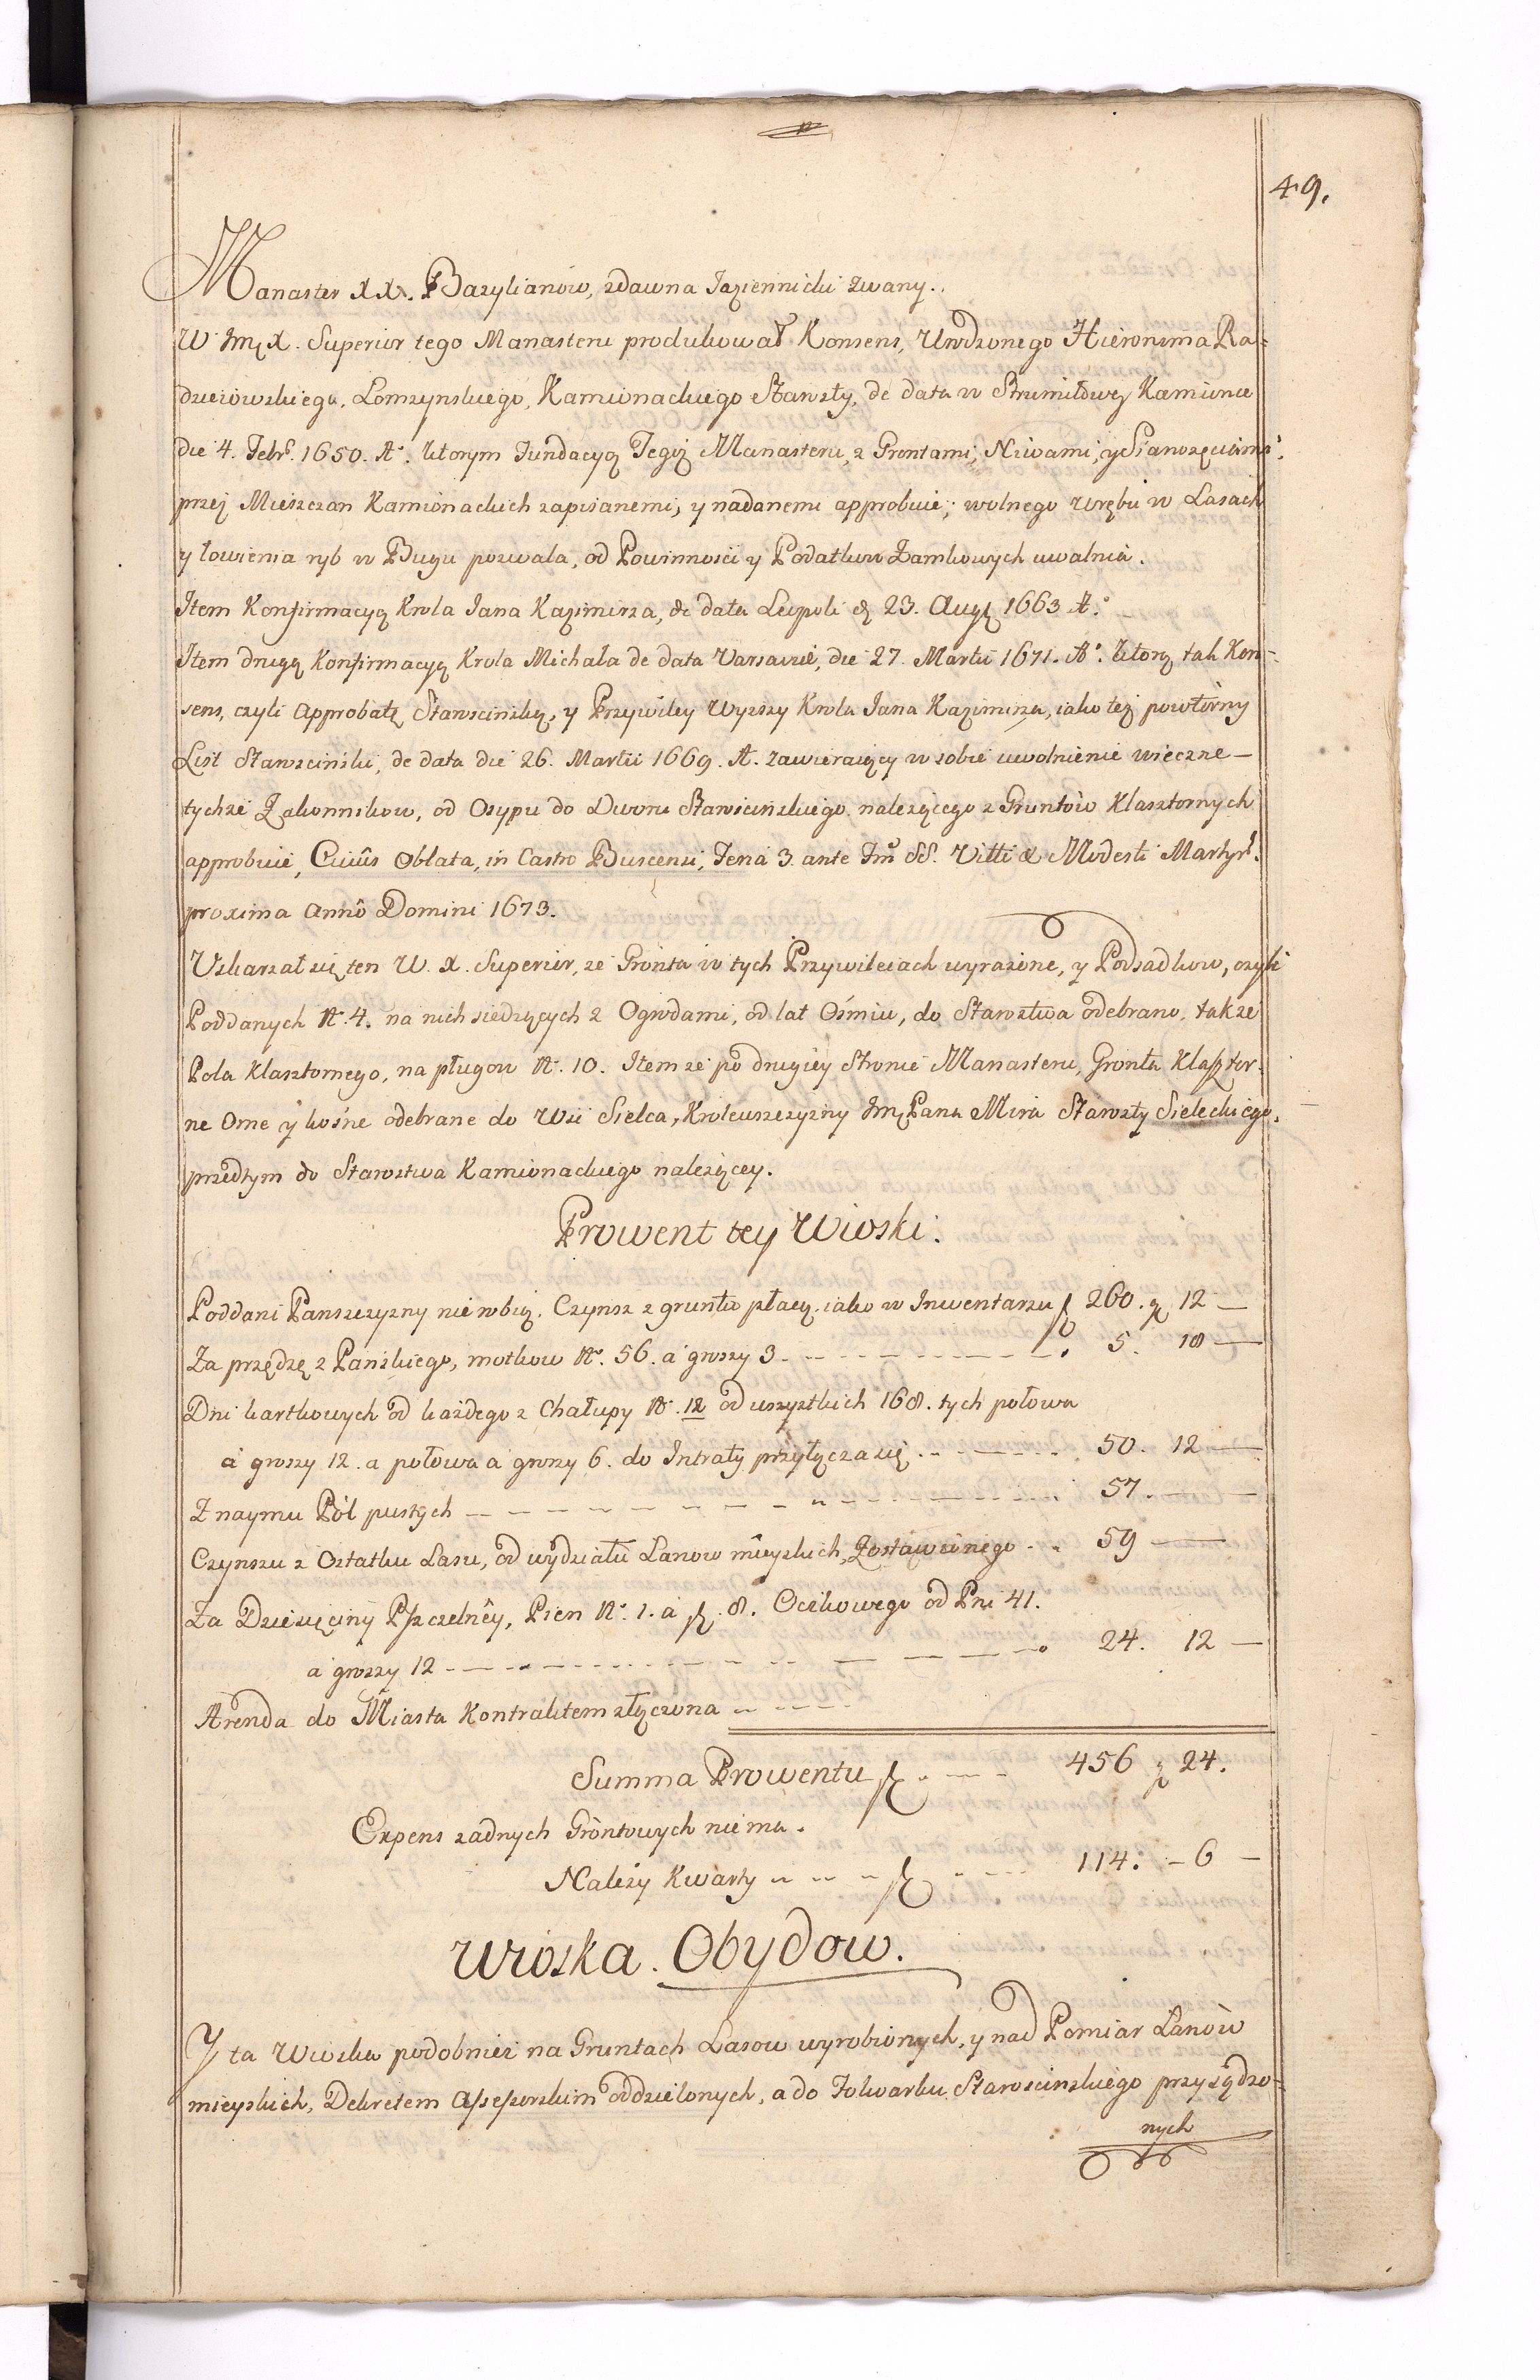 49.
Manaster XX. Bazylianow, zdawna Jaziennicki zwany.
W Jmę X. Superior tego Manasteru produkował Konsens, Urodzonego Hieronima Ra-
dzieiowskiego, Lomzynskiego, Kamionackiego Starosty, de data w Strumiłowey Kamionce
die 4. Febr. 1650. A°. ktorym Fundacyą Tegoż Manasteru, z Grontami, Niwami, y Sianozęciami,
przez Mieszczan Kamionackich zapisanemi, y nadanemi approbuie; wolnego wrębu w Lasach
y łowienia ryb w Bugu pozwala, od Powinnosci y Podatkow Zamkowych uwalnia.
Item Konfirmacyą Krola Jana Kazimirza, de data Leopoli d. 23. Aug. 1663 A°.
Item drugą Konfirmacyą Krola Michała de data Varsaviae, die 27. Martii 1671. A°. ktorą tak Kon-
sens, czyli Approbatę Starościnską, y Przywiley Wyzszy Krola Jana Kazimirza, iako też powtórny
List Starosciński, de data die 26. Martii 1669. A. zawieraiący w sobie uwolnienie wieczne —
tychze Zakonnikow, od Osypu do Dworu Starościnskiego należącego z Gruntów Klasztornych
approbuie, Cuiûs Oblata, in Castro Buscensi, Feria 3. ante Fm SS. Vitti & Modesti Martyr.
proxima Annô Domini 1673.
Uskarzał się ten W. X. Superior, ze Gronta w tych Przywileiach wyrazone, y Podsadkow, czyli
Poddanych N. 4. na nich siedzących z Ogrodami, od lat Ośmiu, do Starostwa odebrano, takze
Pola Klasztornego, na pługow N. 10. Item ze po drugiey Stronie Manasteru, Gronta Klasztor-
ne Orne y kośne odebrane do Wsi Sielca, Krolewszczyzny Jmę Pana Mira Starosty Sieleckiego,
przedtym do Starostwa Kamionackiego należącey.
Prowent tey Wioski.
Poddani Panszczyzny nie robią. Czynsz z gruntu płacą, iako w Inwentarzu f 260. g 12 —
Za przędzę z Pańskiego, motkow N. 56. a groszy 3 - - - 5. 18 —
Dni kartkowych od każdego z Chałupy N. 12 od wszystkich 168. tych połowa
a groszy 12. a połowa a groszy 6. do Intraty przyłącza się. - - - 50. 12 —
Z naymu Pól pustych - - - 57. —
Czynszu z Ostatku Lasu, od wydziału Lanow mieyskich, Zostawionego - - 59 —
Za Dziesięciny Pszczelney, Pien N. 1. a f. 8. Oczkowego od Pni 41.
a groszy 12 - - - 24. 12 —
Arenda do Miasta Kontraktem złączona - - -
Summa Prowentu f - - - 456 g 24.
Expens zadnych Gróntowych nie ma.
Należy Kwarty - - - f - - - 114. - 6 —
Wioska. Obydow.
Y ta Wioska podobnież na Gruntach Lasow wyrobionych, y nad Pomiar Lanòw
mieyskich, Dekretem Assessorskim oddzielonych, a do Folwarku Staroscinskiego przysądzo-
nych